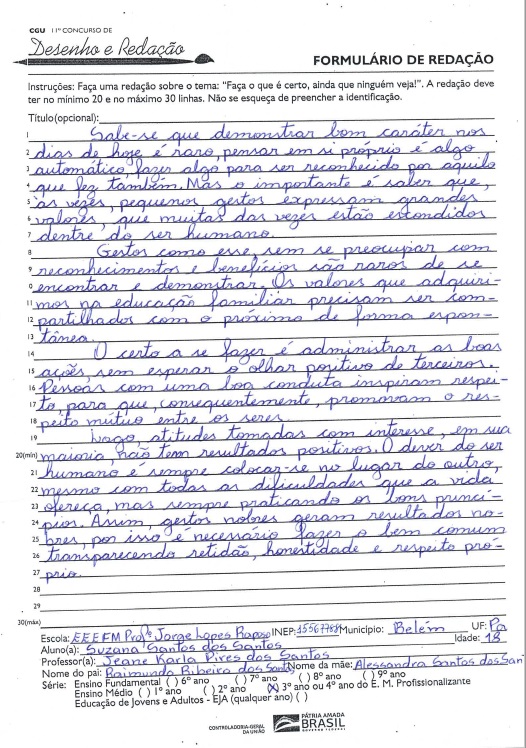 CGU 11º CONCURSO DE
Desenho e Redação
FORMULÁRIO DE REDAÇÃO
Instruções: Faça uma redação sobre o tema: "Faça o que é certo, ainda que ninguém veja!". A redação deve
ter no mínimo 20 e no máximo 30 linhas. Não se esqueça de preencher a identificação.
Título(opcional):
1 Sabe-se que demonstrar bom caráter nos
2 dias de hoje é raro, pensar em si próprio é algo
3 automático, fazer algo para ser reconhecido por aquilo
4 que fez também. Mas o importante é saber que,
5 às vezes, pequenos gestos expressam grandes
6 valores, que muitas das vezes estão escondidos
7 dentro do ser humano.
8 Gestos como esse, sem se preocupar com
9 reconhecimentos e benefícios são raros de se
0 encontrar e demonstrar. Os valores que adquiri-
11 mos na educação familiar precisam ser com-
12 partilhados com o próximo de forma espon-
13 tânea.
14 O certo a se fazer é administrar as boas
15 ações, sem esperar o olhar positivo de terceiros.
16 Pessoas com uma boa conduta inspiram respei-
17 to, para que, consequentemente, promovam o res-
18 peito mútuo entre os seres.
19 Logo, atitudes tomadas com interesse, em sua
20(min) maioria, não tem resultados positivos. O dever do ser
21 humano é sempre colocar-se no lugar do outro,
22 mesmo com todas as dificuldades que a vida
23 ofereça, mas sempre praticando os bons princí-
24 pios. Assim, gestos nobres geram resultados no-
25 bres, por isso é necessário fazer o bem comum
26 transparecendo retidão, honestidade e respeito pró-
27 prio.
28
29
30(máx)
Escola: EEEFM Profº Jorge Lopes Raposo INEP: Município: Belém UF: Pa
Aluno(a): Suzana Santos dos Santos Idade: 18
Professor(a): Jeane Karla Pires dos Santos
Nome do pai: Raimundo Ribeiro dos Santos Nome da mãe: Alessandra Santos dos San
Série: Ensino Fundamental ( ) 6º ano ( ) 7º ano ( ) 8º ano ( ) 9º ano
Ensino Médio ( ) 1º ano ( ) 2º ano (X) 3º ano ou 4º ano do E. M. Profissionalizante
Educação de Jovens e Adultos - EJA (qualquer ano) ( )
CONTROLADORIA-GERAL
DA UNIÃO
PÁTRIA AMADA
BRASIL
GOVERNO FEDERAL